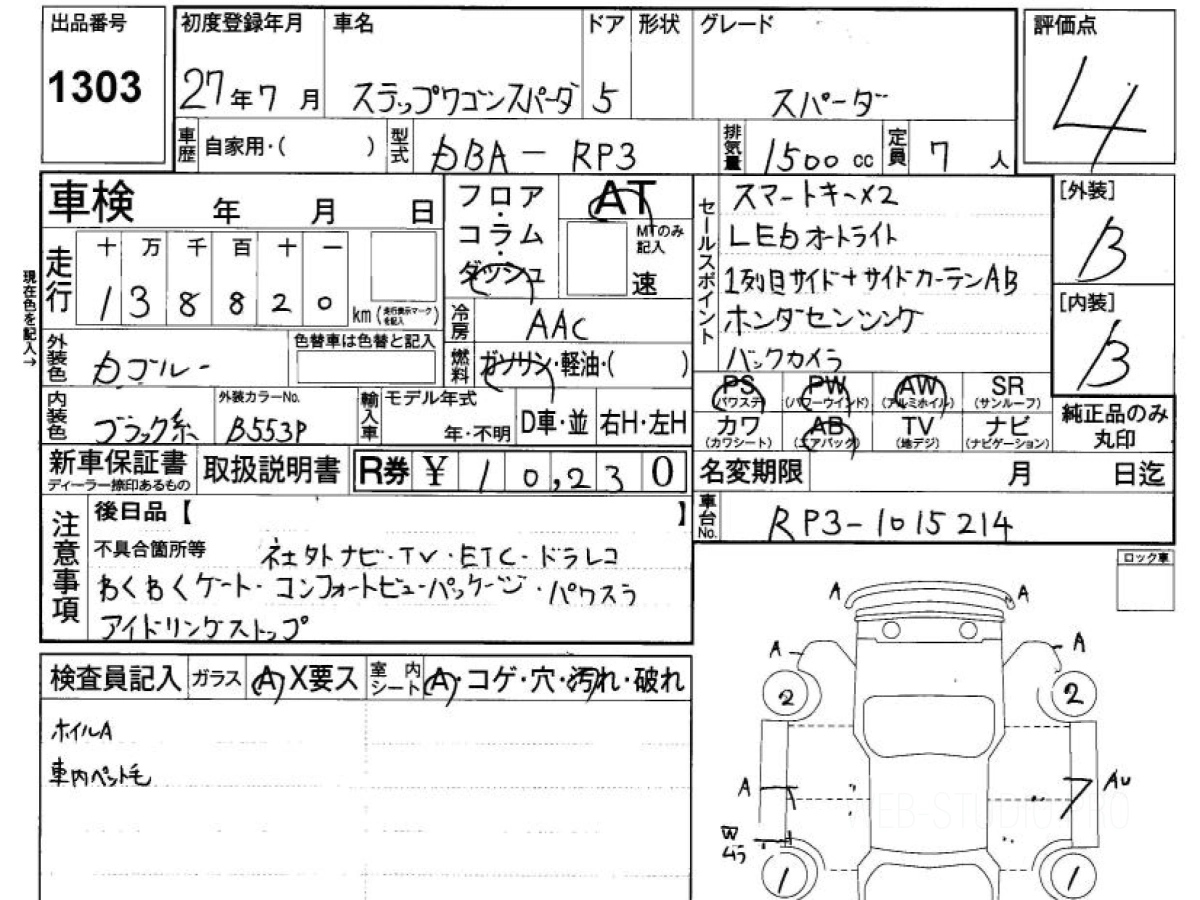 出品番号
1303
初度登録年月
27年7月
車名
ステップワゴンスパーダ
ドア
5
形状
グレード
スパーダ
評価点
4
車歴
自家用・( )
型式
DBA-RP3
排気量
1500cc
定員
7人
車検
年 月 日
フロア・コラム・ダッシュ
AT
MTのみ記入
速
セールスポイント
スマートキー×2
LEDオートライト
1列目サイド+サイドカーテンAB
ホンダセンシング
バックカメラ
[外装]
B
[内装]
B
現在色を記入→
走行
十 万 千 百 十 一
1 3 8 8 2 0
km(走行表示マークを記入)
冷房
AAC
外装色
色替車は色替と記入
燃料
ガソリン・軽油・( )
PS
(パワステ)
PW
(パワーウインド)
AW
(アルミホイル)
SR
(サンルーフ)
カワ
(カワシート)
AB
(エアバック)
TV
(地デジ)
ナビ
(ナビゲーション)
純正品のみ丸印
内装色
ブラック系
外装カラーNo.
B553P
輸入車
モデル年式
年・不明
D車・並
右H・左H
新車保証書
ディーラー捺印あるもの
取扱説明書
R券 ¥10,230
名変期限
月 日迄
車台No.
RP3-1015214
注意事項
後日品【 】
不具合箇所等
社外ナビ・TV・ETC・ドラレコ
わくわくゲート・コンフォートビューパッケージ・パワスラ
アイドリングストップ
ロック車
検査員記入
ガラス
A X要ス
室内シート
A・コゲ・穴・汚れ・破れ
ホイルA
車内ペット毛
A A
A A
2 2
A AU
W
1 1
WEB-STUDIO PRO